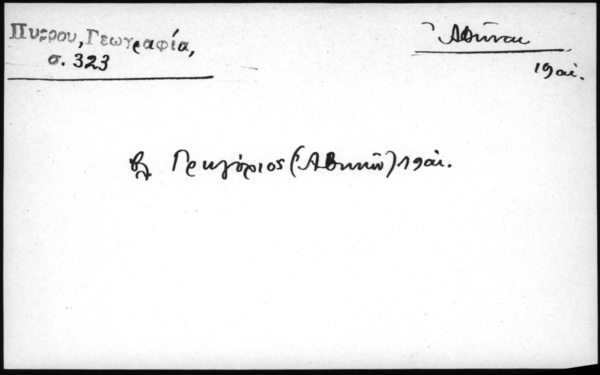 Πυρρου, Γεωγραφία,
σ. 323
Ἀθῆναι
19 αἰ.
βλ Γρηγόριος (Ἀθηνῶν) 19 αἰ.